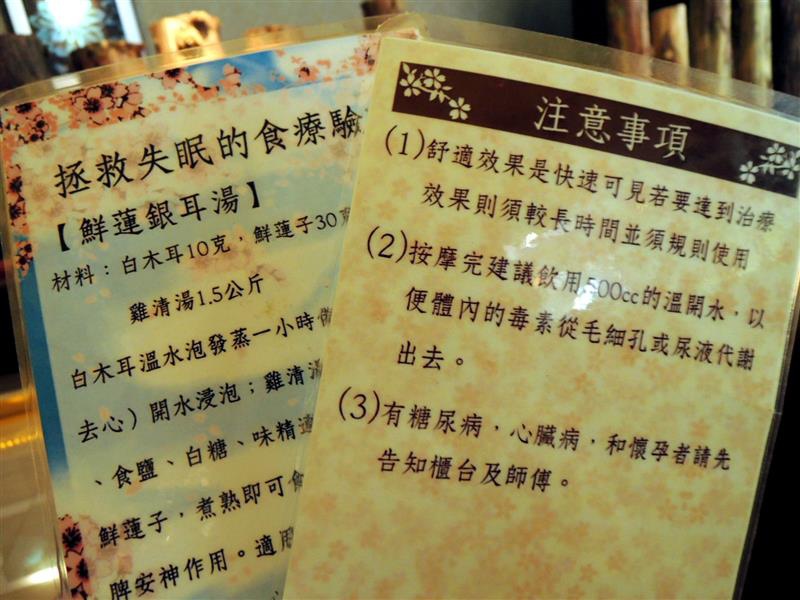 拯救失眠的食療驗
【鮮蓮銀耳湯】
材料：白木耳10克，鮮蓮子30克
雞清湯1.5公斤
白木耳溫水泡發蒸一小時
去心）開水浸泡；雞清湯
、食鹽、白糖、味精適
鮮蓮子，煮熟即可
脾安神作用。適用
注意事項
(1)舒適效果是快速可見若要達到治療
效果則須較長時間並須規則使用
(2)按摩完建議飲用500cc的溫開水，以
便體內的毒素從毛細孔或尿液代謝
出去。
(3)有糖尿病，心臟病，和懷孕者請先
告知櫃台及師傅。